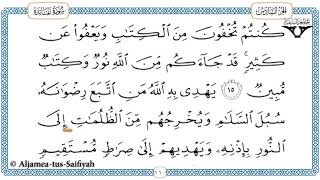 الجزء السادس
سورة المائدة
كُنتُمْ تُخْفُونَ مِنَ ٱلْكِتَٰبِ وَيَعْفُوا۟ عَن
كَثِيرٍ ۚ قَدْ جَآءَكُم مِّنَ ٱللَّهِ نُورٌ وَكِتَٰبٌ
مُّبِينٌ ١٥ يَهْدِى بِهِ ٱللَّهُ مَنِ ٱتَّبَعَ رِضْوَٰنَهُۥ
سُبُلَ ٱلسَّلَٰمِ وَيُخْرِجُهُم مِّنَ ٱلظُّلُمَٰتِ إِلَى
ٱلنُّورِ بِإِذْنِهِۦ وَيَهْدِيهِمْ إِلَىٰ صِرَٰطٍ مُّسْتَقِيمٍ
© Aljamea-tus-Saifiyah
١١٠